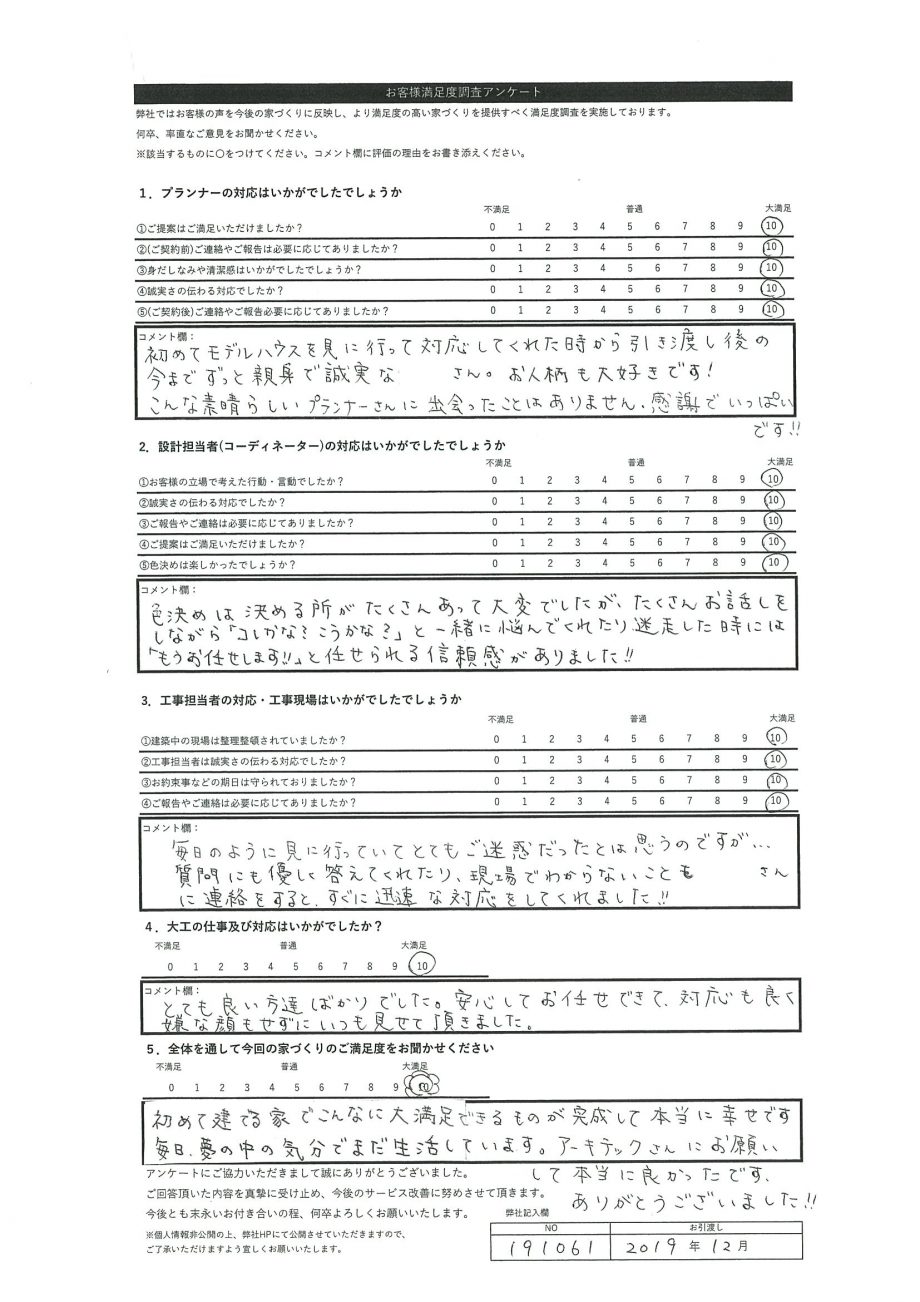 お客様満足度調査アンケート
弊社ではお客様の声を今後の家づくりに反映し、より満足度の高い家づくりを提供すべく満足度調査を実施しております。
何卒、率直なご意見をお聞かせください。
※該当するものに〇をつけてください。コメント欄に評価の理由をお書き添えください。
1．プランナーの対応はいかがでしたでしょうか
不満足 普通 大満足
①ご提案はご満足いただけましたか？ 0 1 2 3 4 5 6 7 8 9 10
②(ご契約前)ご連絡やご報告は必要に応じてありましたか？ 0 1 2 3 4 5 6 7 8 9 10
③身だしなみや清潔感はいかがでしたでしょうか？ 0 1 2 3 4 5 6 7 8 9 10
④誠実さの伝わる対応でしたか？ 0 1 2 3 4 5 6 7 8 9 10
⑤(ご契約後)ご連絡やご報告必要に応じてありましたか？ 0 1 2 3 4 5 6 7 8 9 10
コメント欄：
初めてモデルハウスを見に行って対応してくれた時から引き渡し後の
今までずっと親身で誠実な さん。お人柄も大好きです！
こんな素晴らしいプランナーさんに出会ったことはありません。感謝でいっぱい
です!!
2．設計担当者(コーディネーター)の対応はいかがでしたでしょうか
不満足 普通 大満足
①お客様の立場で考えた行動・言動でしたか？ 0 1 2 3 4 5 6 7 8 9 10
②誠実さの伝わる対応でしたか？ 0 1 2 3 4 5 6 7 8 9 10
③ご報告やご連絡は必要に応じてありましたか？ 0 1 2 3 4 5 6 7 8 9 10
④ご提案はご満足いただけましたか？ 0 1 2 3 4 5 6 7 8 9 10
⑤色決めは楽しかったでしょうか？ 0 1 2 3 4 5 6 7 8 9 10
コメント欄：
色決めは決める所がたくさんあって大変でしたが、たくさんお話しを
しながら「コレかな？こうかな？」と一緒に悩んでくれたり迷走した時には
「もうお任せします!!」と任せられる信頼感がありました!!
3．工事担当者の対応・工事現場はいかがでしたでしょうか
不満足 普通 大満足
①建築中の現場は整理整頓されていましたか？ 0 1 2 3 4 5 6 7 8 9 10
②工事担当者は誠実さの伝わる対応でしたか？ 0 1 2 3 4 5 6 7 8 9 10
③お約束事などの期日は守られておりましたか？ 0 1 2 3 4 5 6 7 8 9 10
④ご報告やご連絡は必要に応じてありましたか？ 0 1 2 3 4 5 6 7 8 9 10
コメント欄：
毎日のように見に行っていてとてもご迷惑だったとは思うのですが...
質問にも優しく答えてくれたり、現場でわからないことも さん
に連絡をすると、すぐに迅速な対応をしてくれました!!
4．大工の仕事及び対応はいかがでしたか？
不満足 普通 大満足
0 1 2 3 4 5 6 7 8 9 10
コメント欄：
とても良い方達ばかりでした。安心してお任せできて、対応も良く
嫌な顔もせずにいつも見せて頂きました。
5．全体を通して今回の家づくりのご満足度をお聞かせください
不満足 普通 大満足
0 1 2 3 4 5 6 7 8 9 10
初めて建てる家でこんなに大満足できるものが完成して本当に幸せです
毎日、夢の中の気分でまだ生活しています。アーキテックさんにお願い
して本当に良かったです。
ありがとうございました!!
アンケートにご協力いただきまして誠にありがとうございました。
ご回答頂いた内容を真摯に受け止め、今後のサービス改善に努めさせて頂きます。
今後とも末永いお付き合いの程、何卒よろしくお願いいたします。
※個人情報非公開の上、弊社HPにて公開させていただきますので、
ご了承いただけますよう宜しくお願いいたします。
弊社記入欄
NO お引渡し
191061 2019 年 12 月